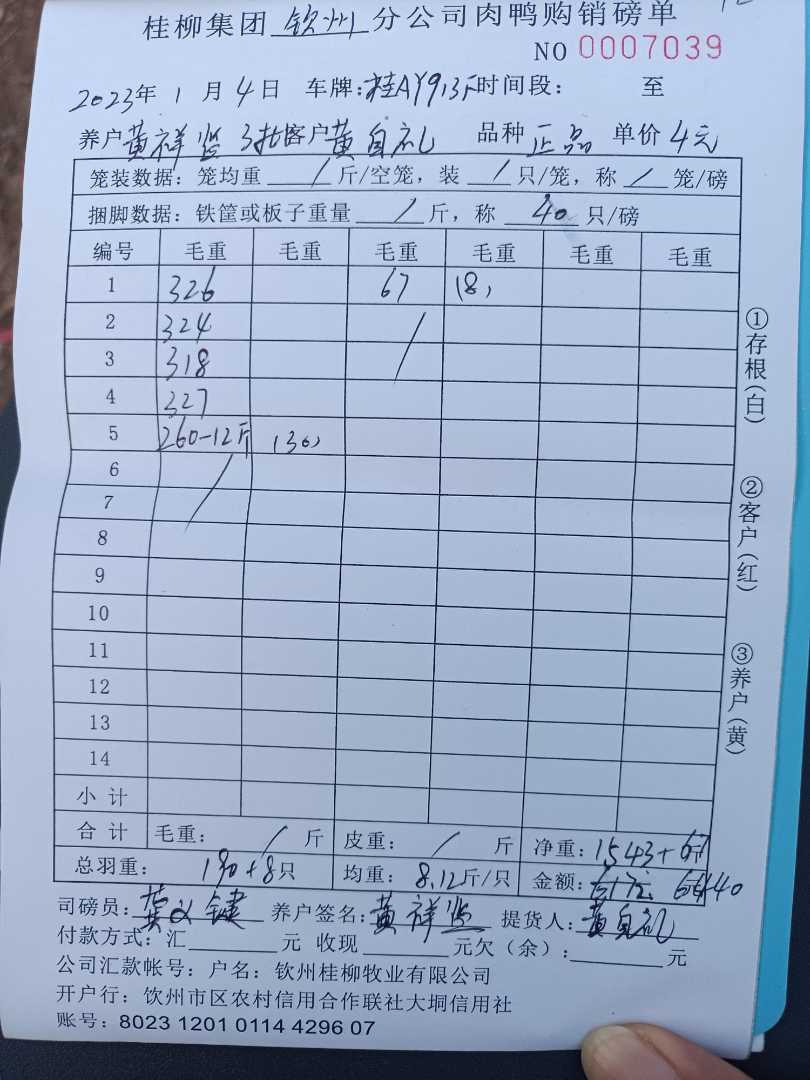 桂柳集团 钦州 分公司肉鸭购销磅单
NO 0007039
2023年 1 月 4 日 车牌:桂AY913F 时间段: 至
养户 黄祥 3批 客户 黄自礼 品种 正品 单价 4元
笼装数据: 笼均重 / 斤/空笼, 装 / 只/笼, 称 / 笼/磅
捆脚数据: 铁筐或板子重量 / 斤, 称 40 只/磅
编号 毛重 毛重 毛重 毛重 毛重 毛重
1 326 67 (8)
2 324 /
3 318
4 327
5 260-12斤 (30)
6 /
7
8
9
10
11
12
13
14
小 计
合 计 毛重: / 斤 皮重: / 斤 净重: 1543+67
总羽重: 190+8只 均重: 8.12斤/只 金额: 6440
司磅员: 键 养户签名: 黄祥 提货人: 黄自礼
付款方式: 汇 元 收现 元欠(余): 元
公司汇款帐号: 户名: 钦州桂柳牧业有限公司
开户行: 钦州市区农村信用合作联社大垌信用社
账号: 8023 1201 0114 4296 07
①存根(白)
②客户(红)
③养户(黄)